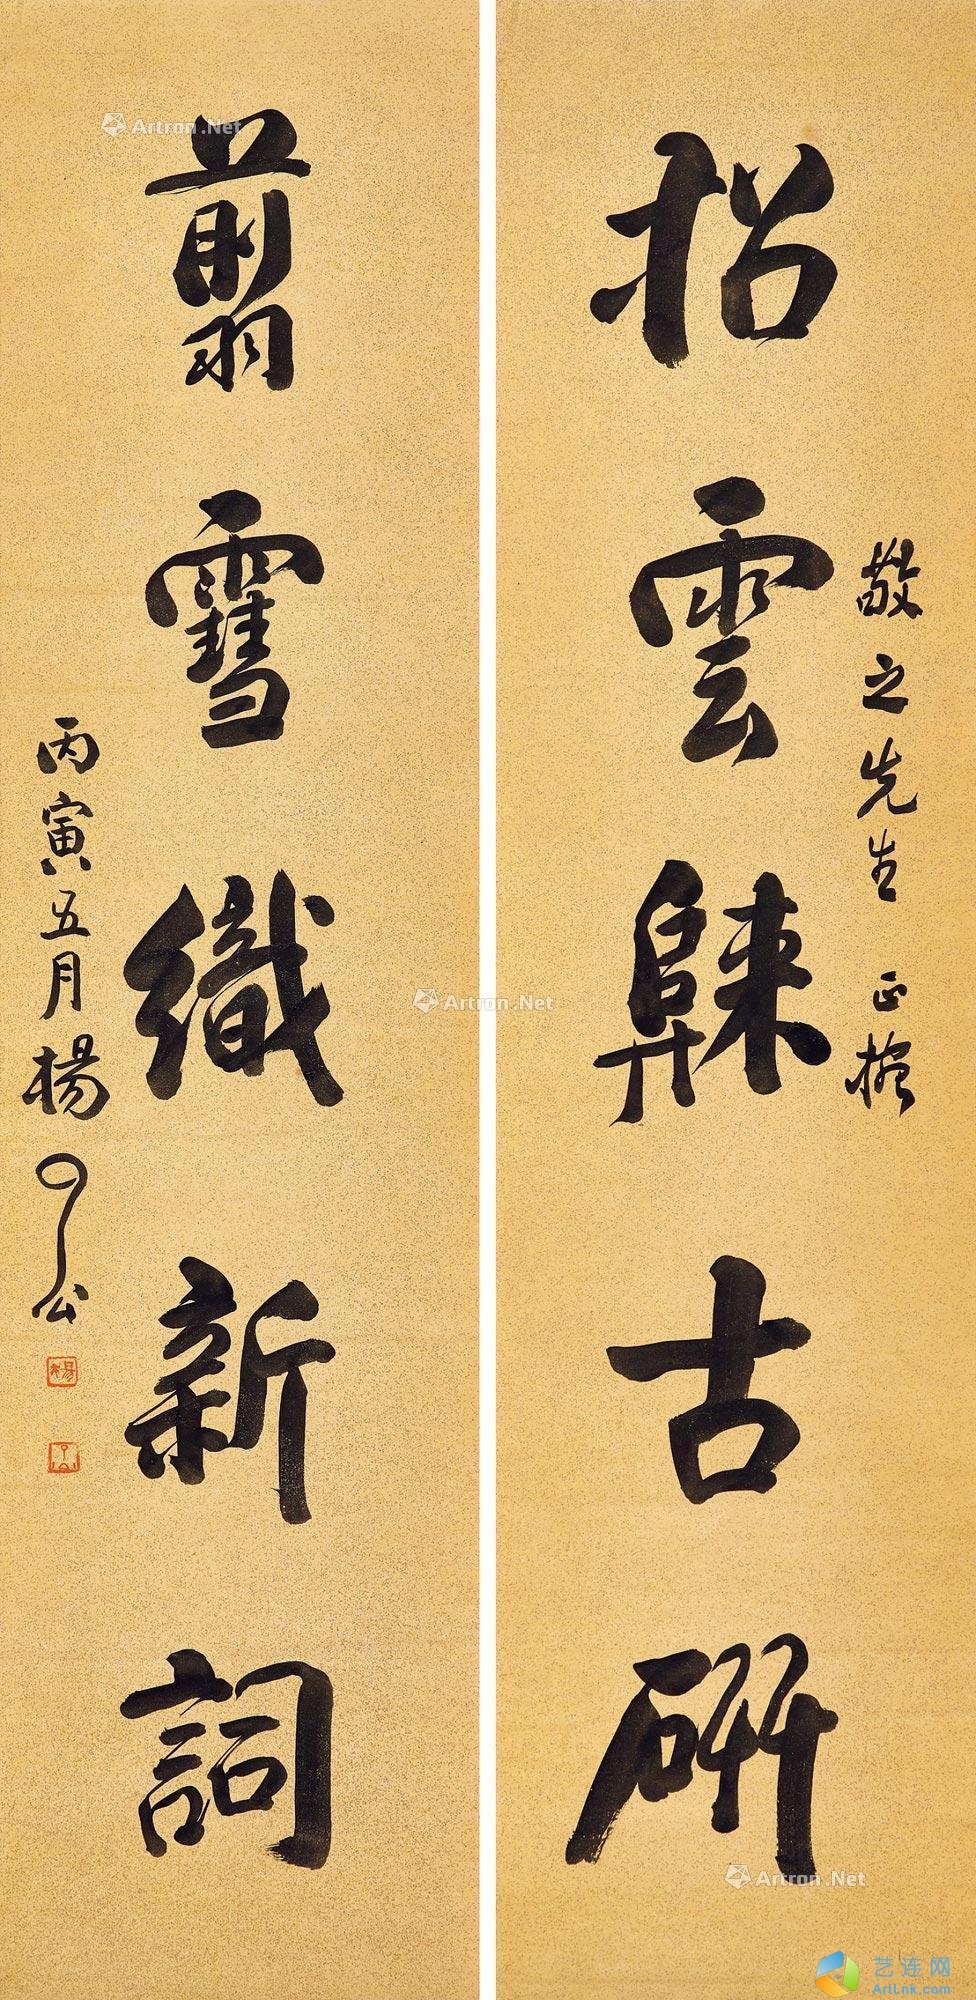 招雲古研
敬之先生 正
翦雪織新詞
丙寅五月楊了公
了公
Artron.Net
Artron.Net
Artron.Net
艺连网
ArtLnk.com